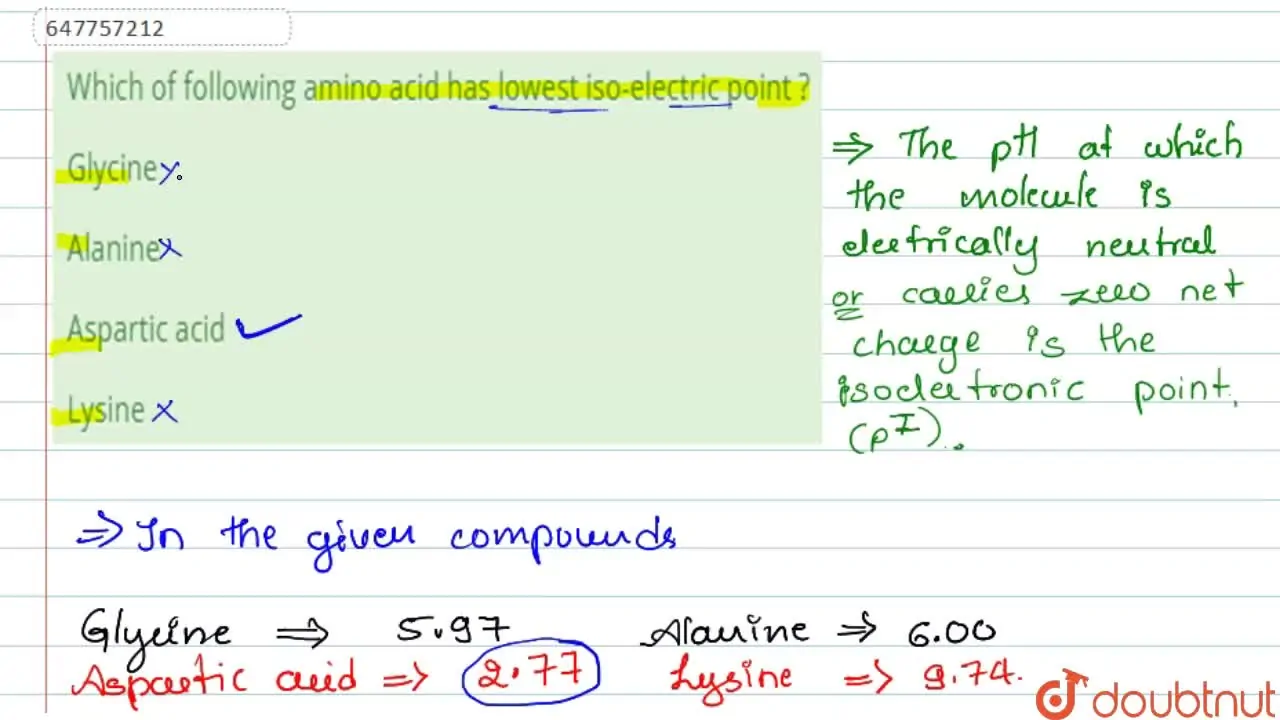 647757212
Which of following amino acid has lowest iso-electric point ?
Glycine x
Alanine x
Aspartic acid ✓
Lysine x
⇒ The pH at which
the molecule is
electrically neutral
or carries zero net
charge is the
isoelectronic point.
(pI).
⇒ In the given compounds
Glycine ⇒ 5.97 Alanine ⇒ 6.00
Aspartic acid ⇒ 2.77 Lysine ⇒ 9.74.
doubtnut